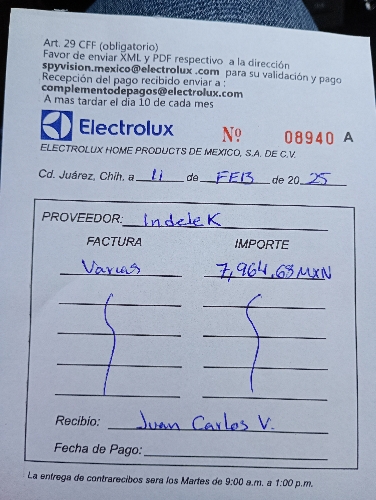 Art. 29 CFF (obligatorio)
Favor de enviar XML y PDF respectivo a la dirección
spyvision.mexico@electrolux .com para su validación y pago
Recepción del pago recibido enviar a :
complementodepagos@electrolux.com
A mas tardar el dia 10 de cada mes
Electrolux Nº 08940 A
ELECTROLUX HOME PRODUCTS DE MEXICO, S.A. DE C.V.
Cd. Juárez, Chih. a 11 de FEB de 20 25
PROVEEDOR: Indelek
FACTURA IMPORTE
Varias 7,964.63 MXN
Recibio: Juan Carlos V.
Fecha de Pago:
La entrega de contrarecibos sera los Martes de 9:00 a.m. a 1:00 p.m.